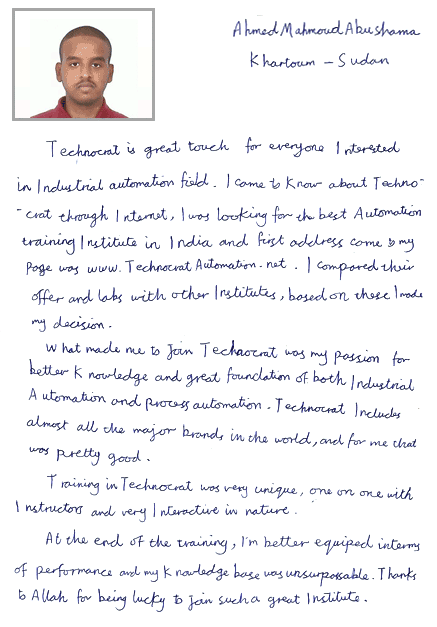 Ahmed Mahmoud Abushama
Khartoum - Sudan
Technocrat is great touch for everyone Interested
in Industrial automation field. I came to know about Techno-
-crat through Internet, I was looking for the best Automation
training Institute in India and first address come to my
Page was www.TechnocratAutomation.net. I compared their
offer and labs with other Institutes, based on these I made
my decision.
What made me to Join Technocrat was my passion for
better Knowledge and great foundation of both Industrial
Automation and process automation. Technocrat Includes
almost all the major brands in the world, and for me that
was pretty good.
Training in Technocrat was very unique, one on one with
Instructors and very Interactive in nature.
At the end of the training, I'm better equiped interms
of performance and my Knowledge base was unsurpossable. Thanks
to Allah for being lucky to Join such a great Institute.